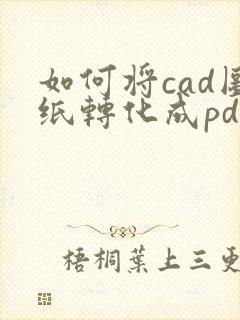 如何将cad
纸轉化成pd
梧桐葉上三更